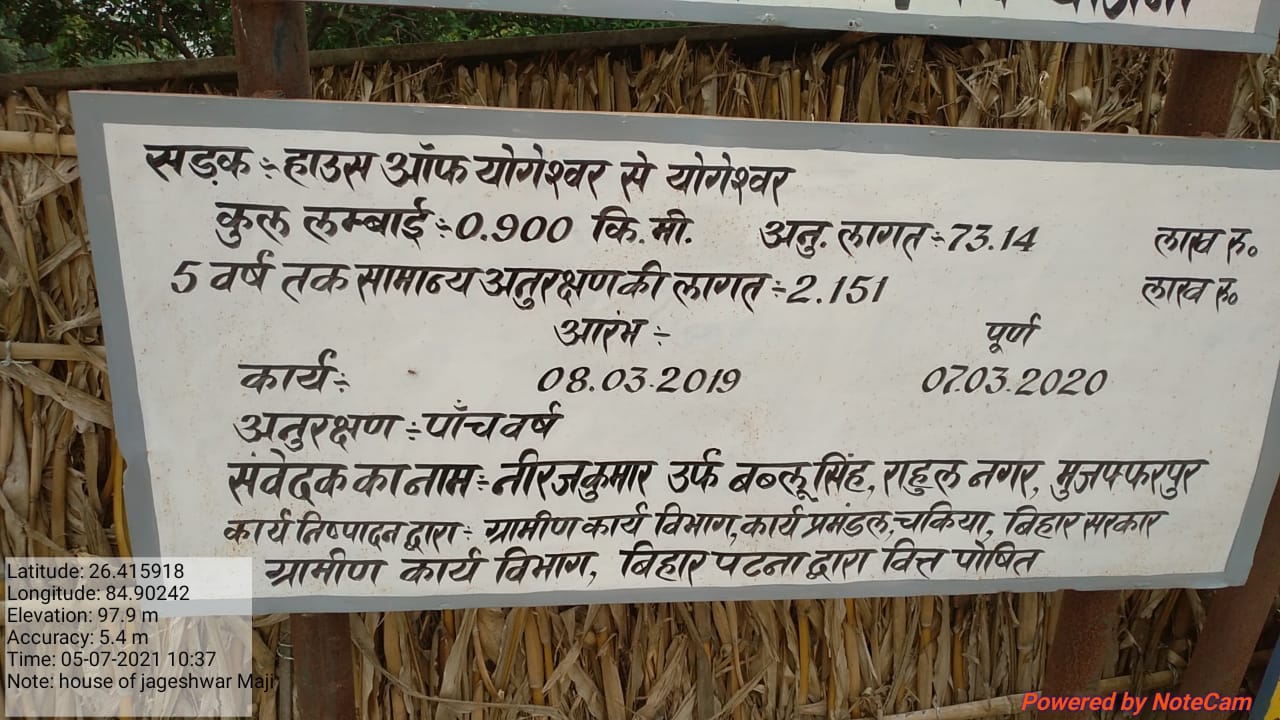 सड़क :- हाउस ऑफ योगेश्वर से योगेश्वर
कुल लम्बाई :- 0.900 कि.मी. अनु. लागत :- 73.14 लाख रु०
5 वर्ष तक सामान्य अनुरक्षण की लागत :- 2.151 लाख रु०
आरंभ :- पूर्ण
कार्य :- 08.03.2019 07.03.2020
अनुरक्षण :- पाँच वर्ष
संवेदक का नाम :- नीरज कुमार उर्फ बब्लू सिंह, राहुल नगर, मुजफ्फरपुर
कार्य निष्पादन द्वारा :- ग्रामीण कार्य विभाग, कार्य प्रमंडल, चकिया, बिहार सरकार
ग्रामीण कार्य विभाग, बिहार पटना द्वारा वित्त पोषित
Latitude: 26.415918
Longitude: 84.90242
Elevation: 97.9 m
Accuracy: 5.4 m
Time: 05-07-2021 10:37
Note: house of jageshwar Maji
Powered by NoteCam